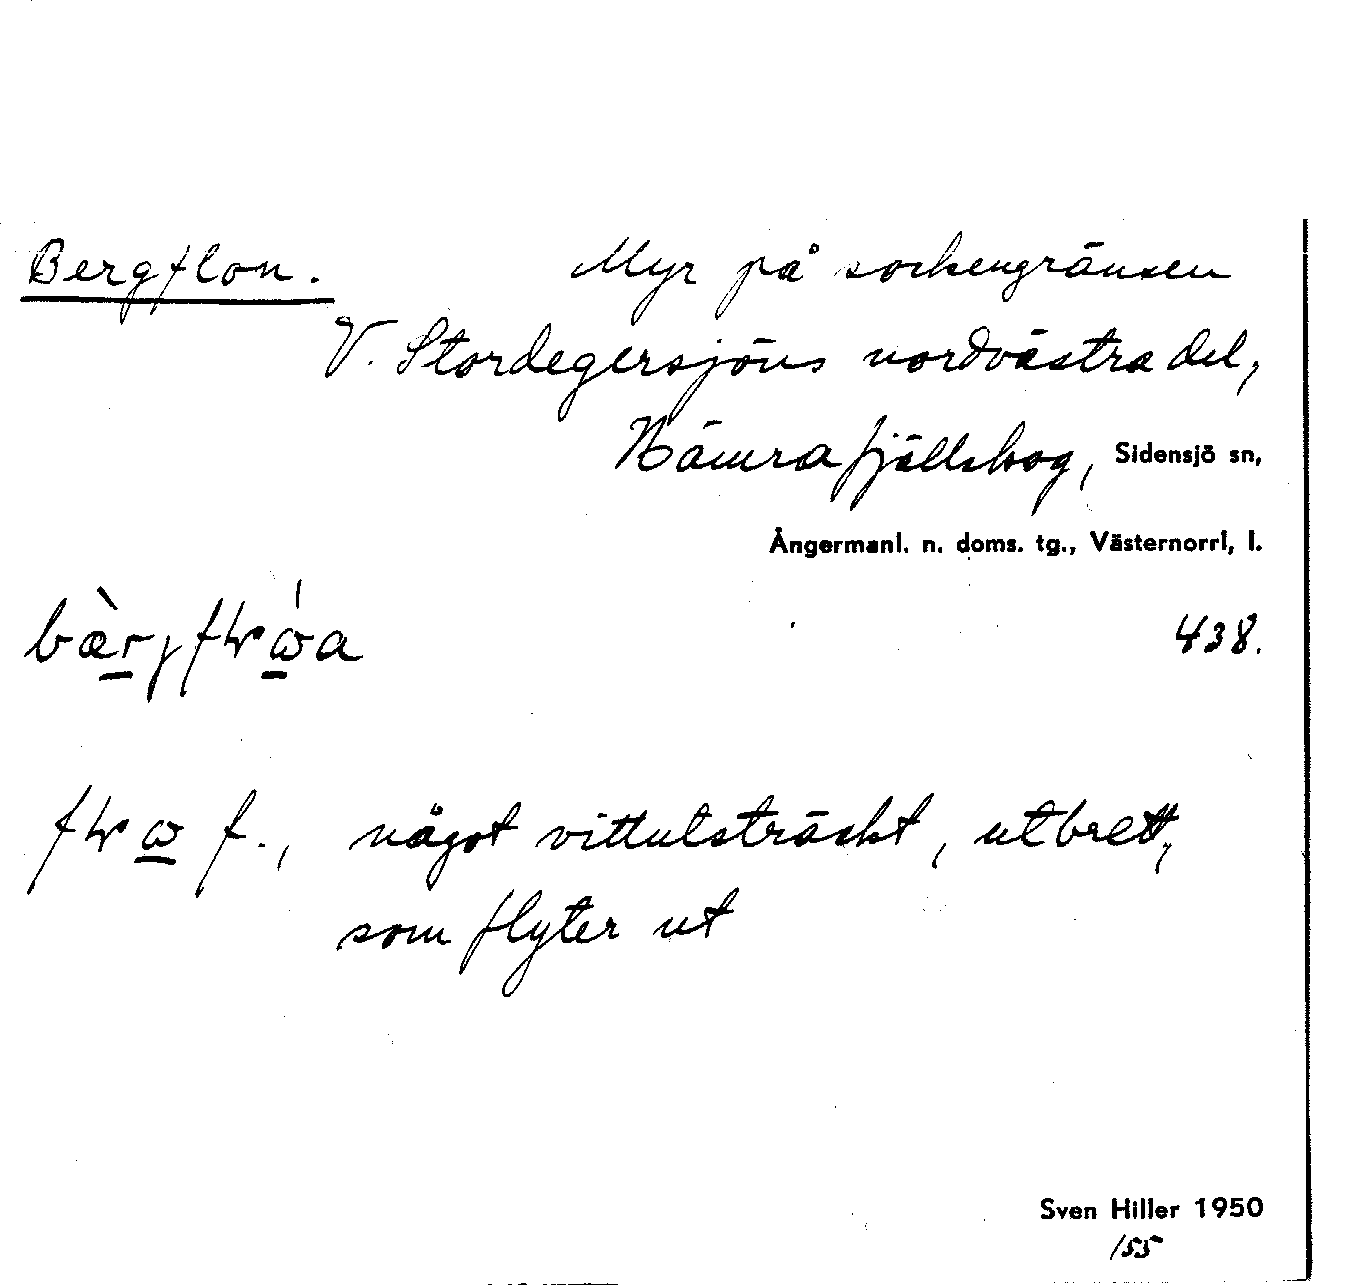 Bergflon. Myr på sockengränsen
V. Stordegersjöns nordvästra del,
Nämra fjällskog, Sidensjö sn,
Ångermanl. n. doms. tg., Västernorrl, l.
438.
f., något vittutsträckt, utbrett,
som flyter ut
Sven Hiller 1950
155